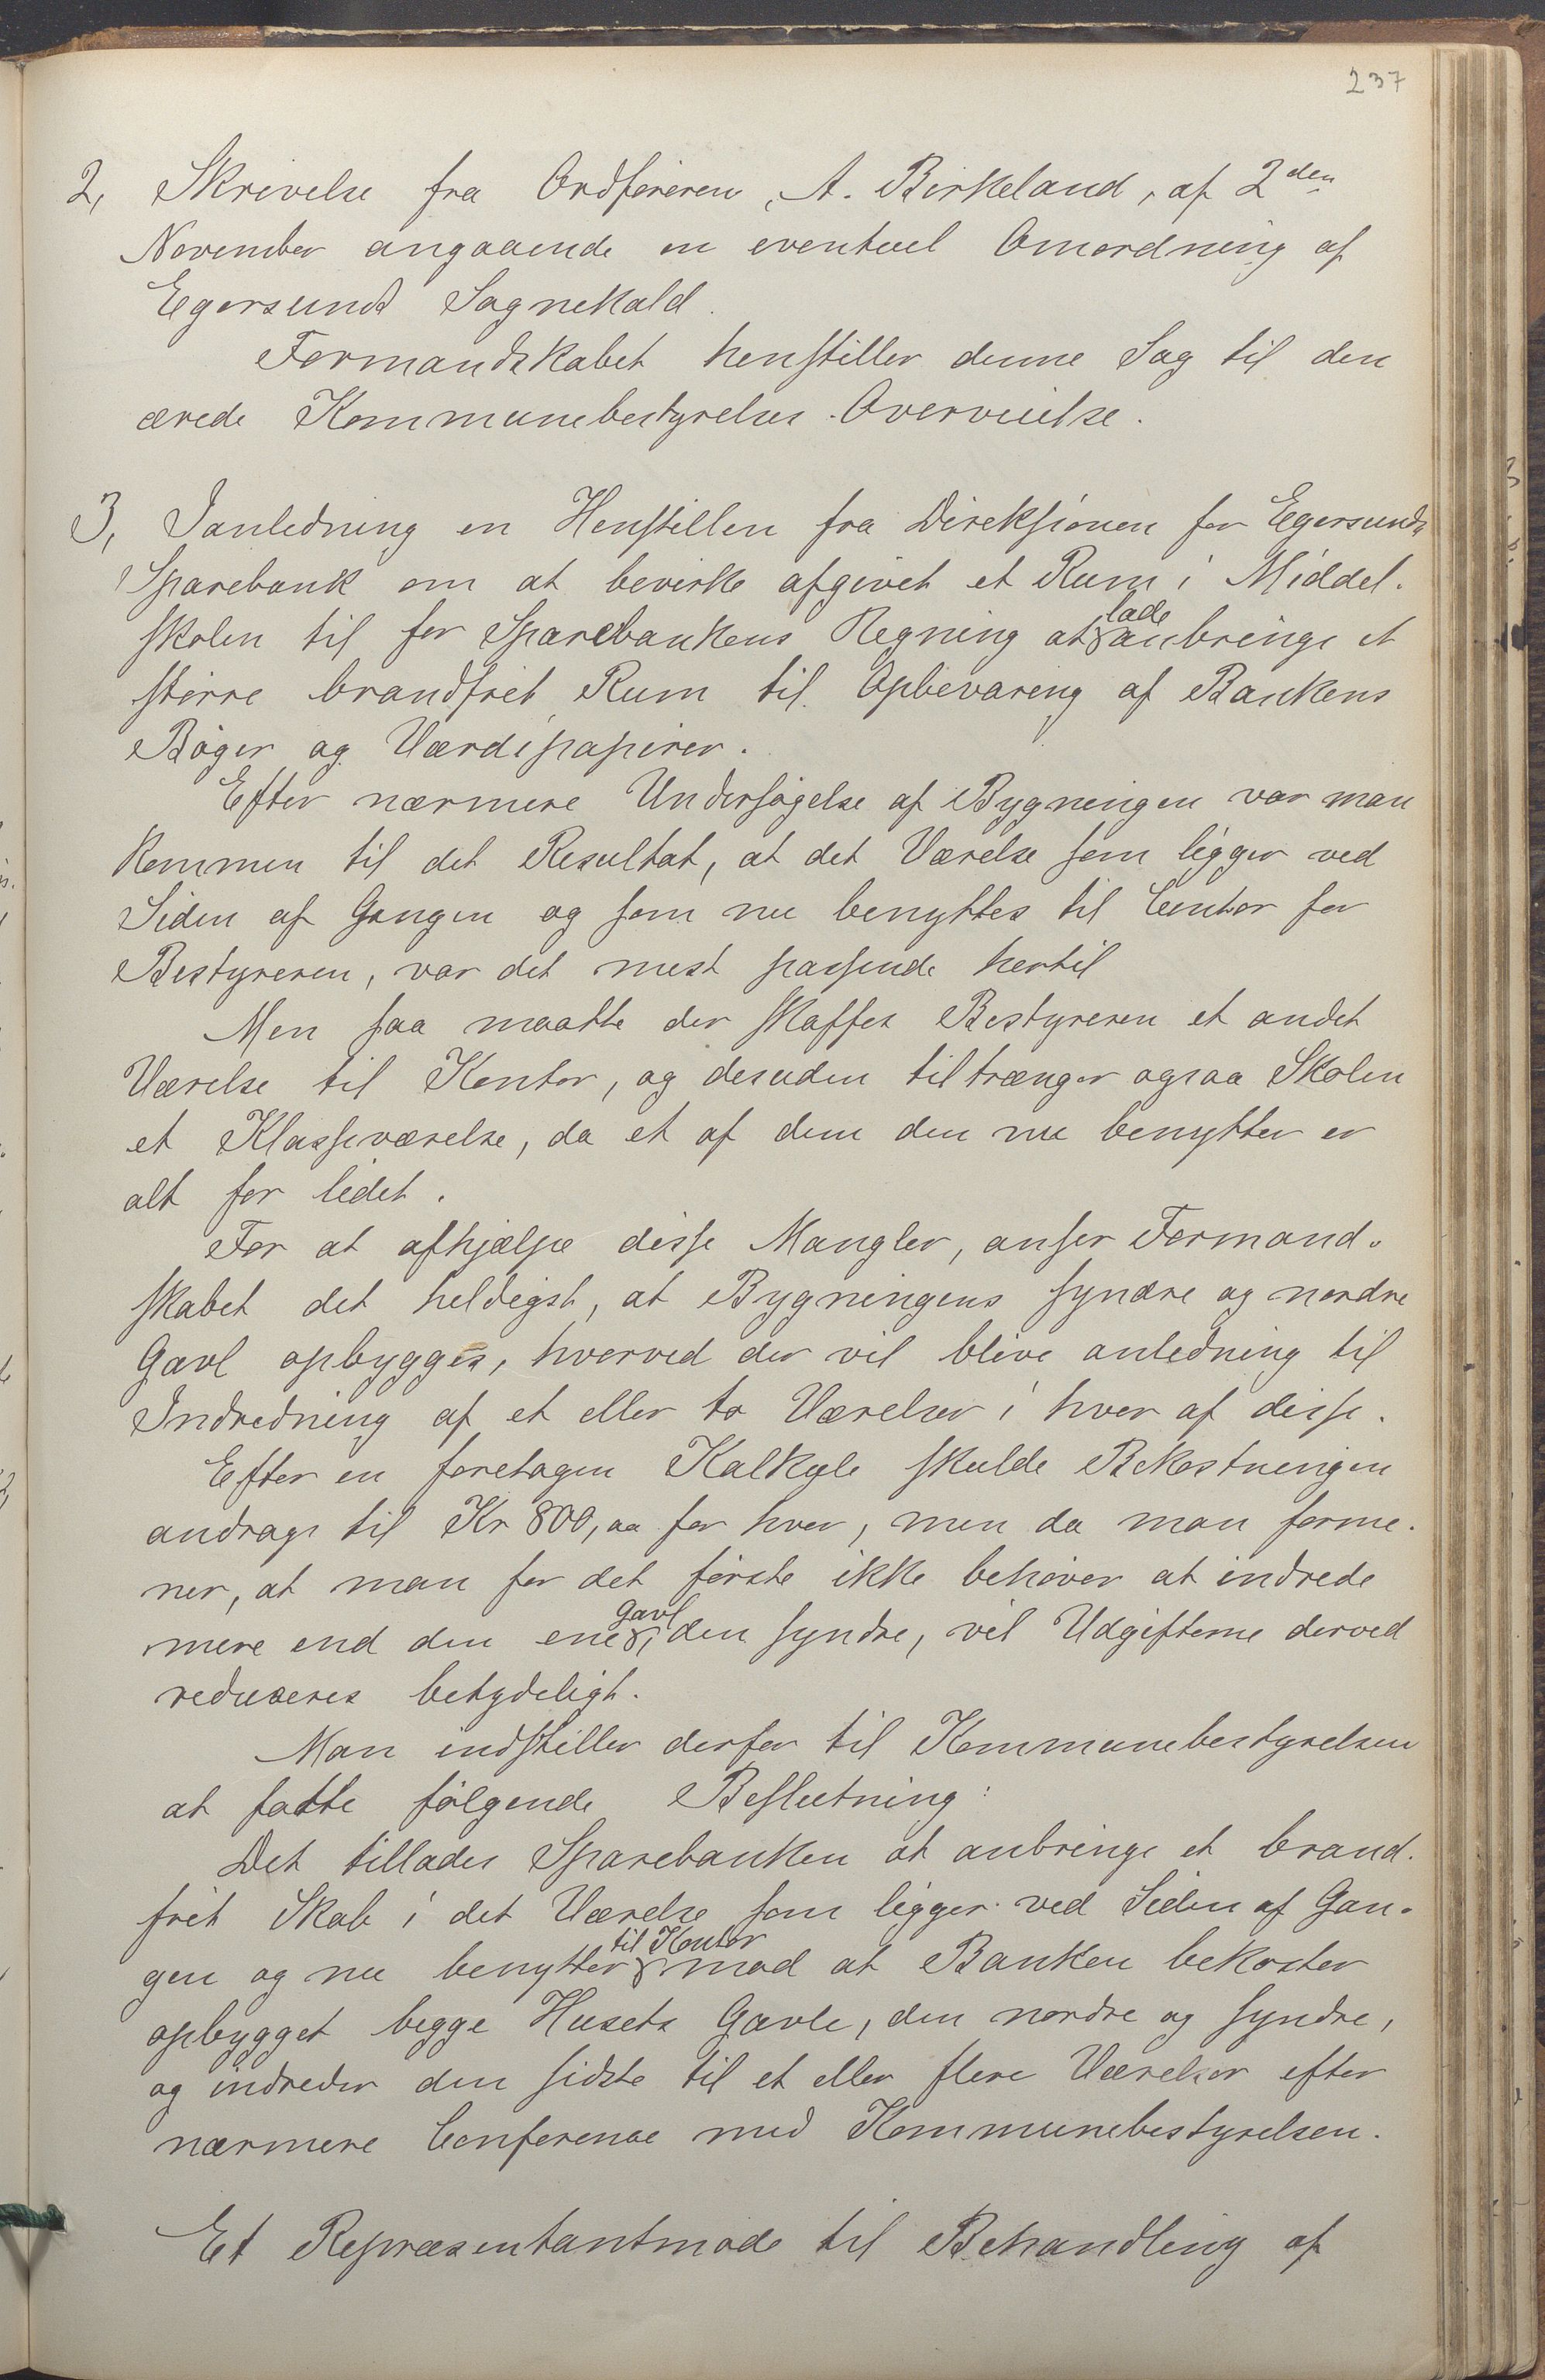 237
2, Skrivelse fra Ordføreren, A. Birkeland, af 2den
November angaaende en eventuel Omordning af
Egersund Sognekald.
Formandskabet henstiller denne Sag til den
ærede Kommunebestyrelses Overveielse.
3, Ianledning en Henstillen fra Direksionen for Egersunds
Sparebank om at bevirke afgivet et Rum i Middel-
skolen til for Sparebankens Regning at lade anbringe et
større brandfrit Rum til Opbevaring af Bankens
Bøger og Værdipapirer.
Efter nærmere Undersøgelse af Bygningen var man
kommen til det Resultat, at det Værelse som ligger ved
Siden af Gangen og som nu benyttes til Contor for
Bestyreren, var det mest passende hertil
Men saa maatte der skaffes Bestyreren et andet
Værelse til Kontor, og desuden tiltrænger ogsaa Skolen
et Klasseværelse, da et af dem den nu benytter er
alt for lidet.
For at afhjælpe disse Mangler, anser Formand-
skabet det heldigst, at Bygningens syndre og nordre
Gavl opbygges, hvorved der vil blive anledning til
Indredning af et eller to Værelser i hver af disse.
Efter en foretagen Kalkyle skulde Bekostningen
andrage til Kr 800,00 for hver, men da man forme-
ner, at man for det første ikke behøver at indrede
mere end den ene Gavl, den syndre, vil Udgifterne derved
reduseres betydeligt.
Man indstiller derfor til Kommunebestyrelsen
at fatte følgende Beslutning:
Det tillades Sparebanken at anbringe et brand-
frit Skab i det Værelse som ligger ved Siden af Gan-
gen og nu benyttes til Kontor mod at Banken bekoster
opbygget begge Husets Gavle, den nordre og syndre,
og indreder den sidste til et eller flere Værelser efter
nærmere Conference med Kommunebestyrelsen.
Et Repræsentantmøde til Behandling af